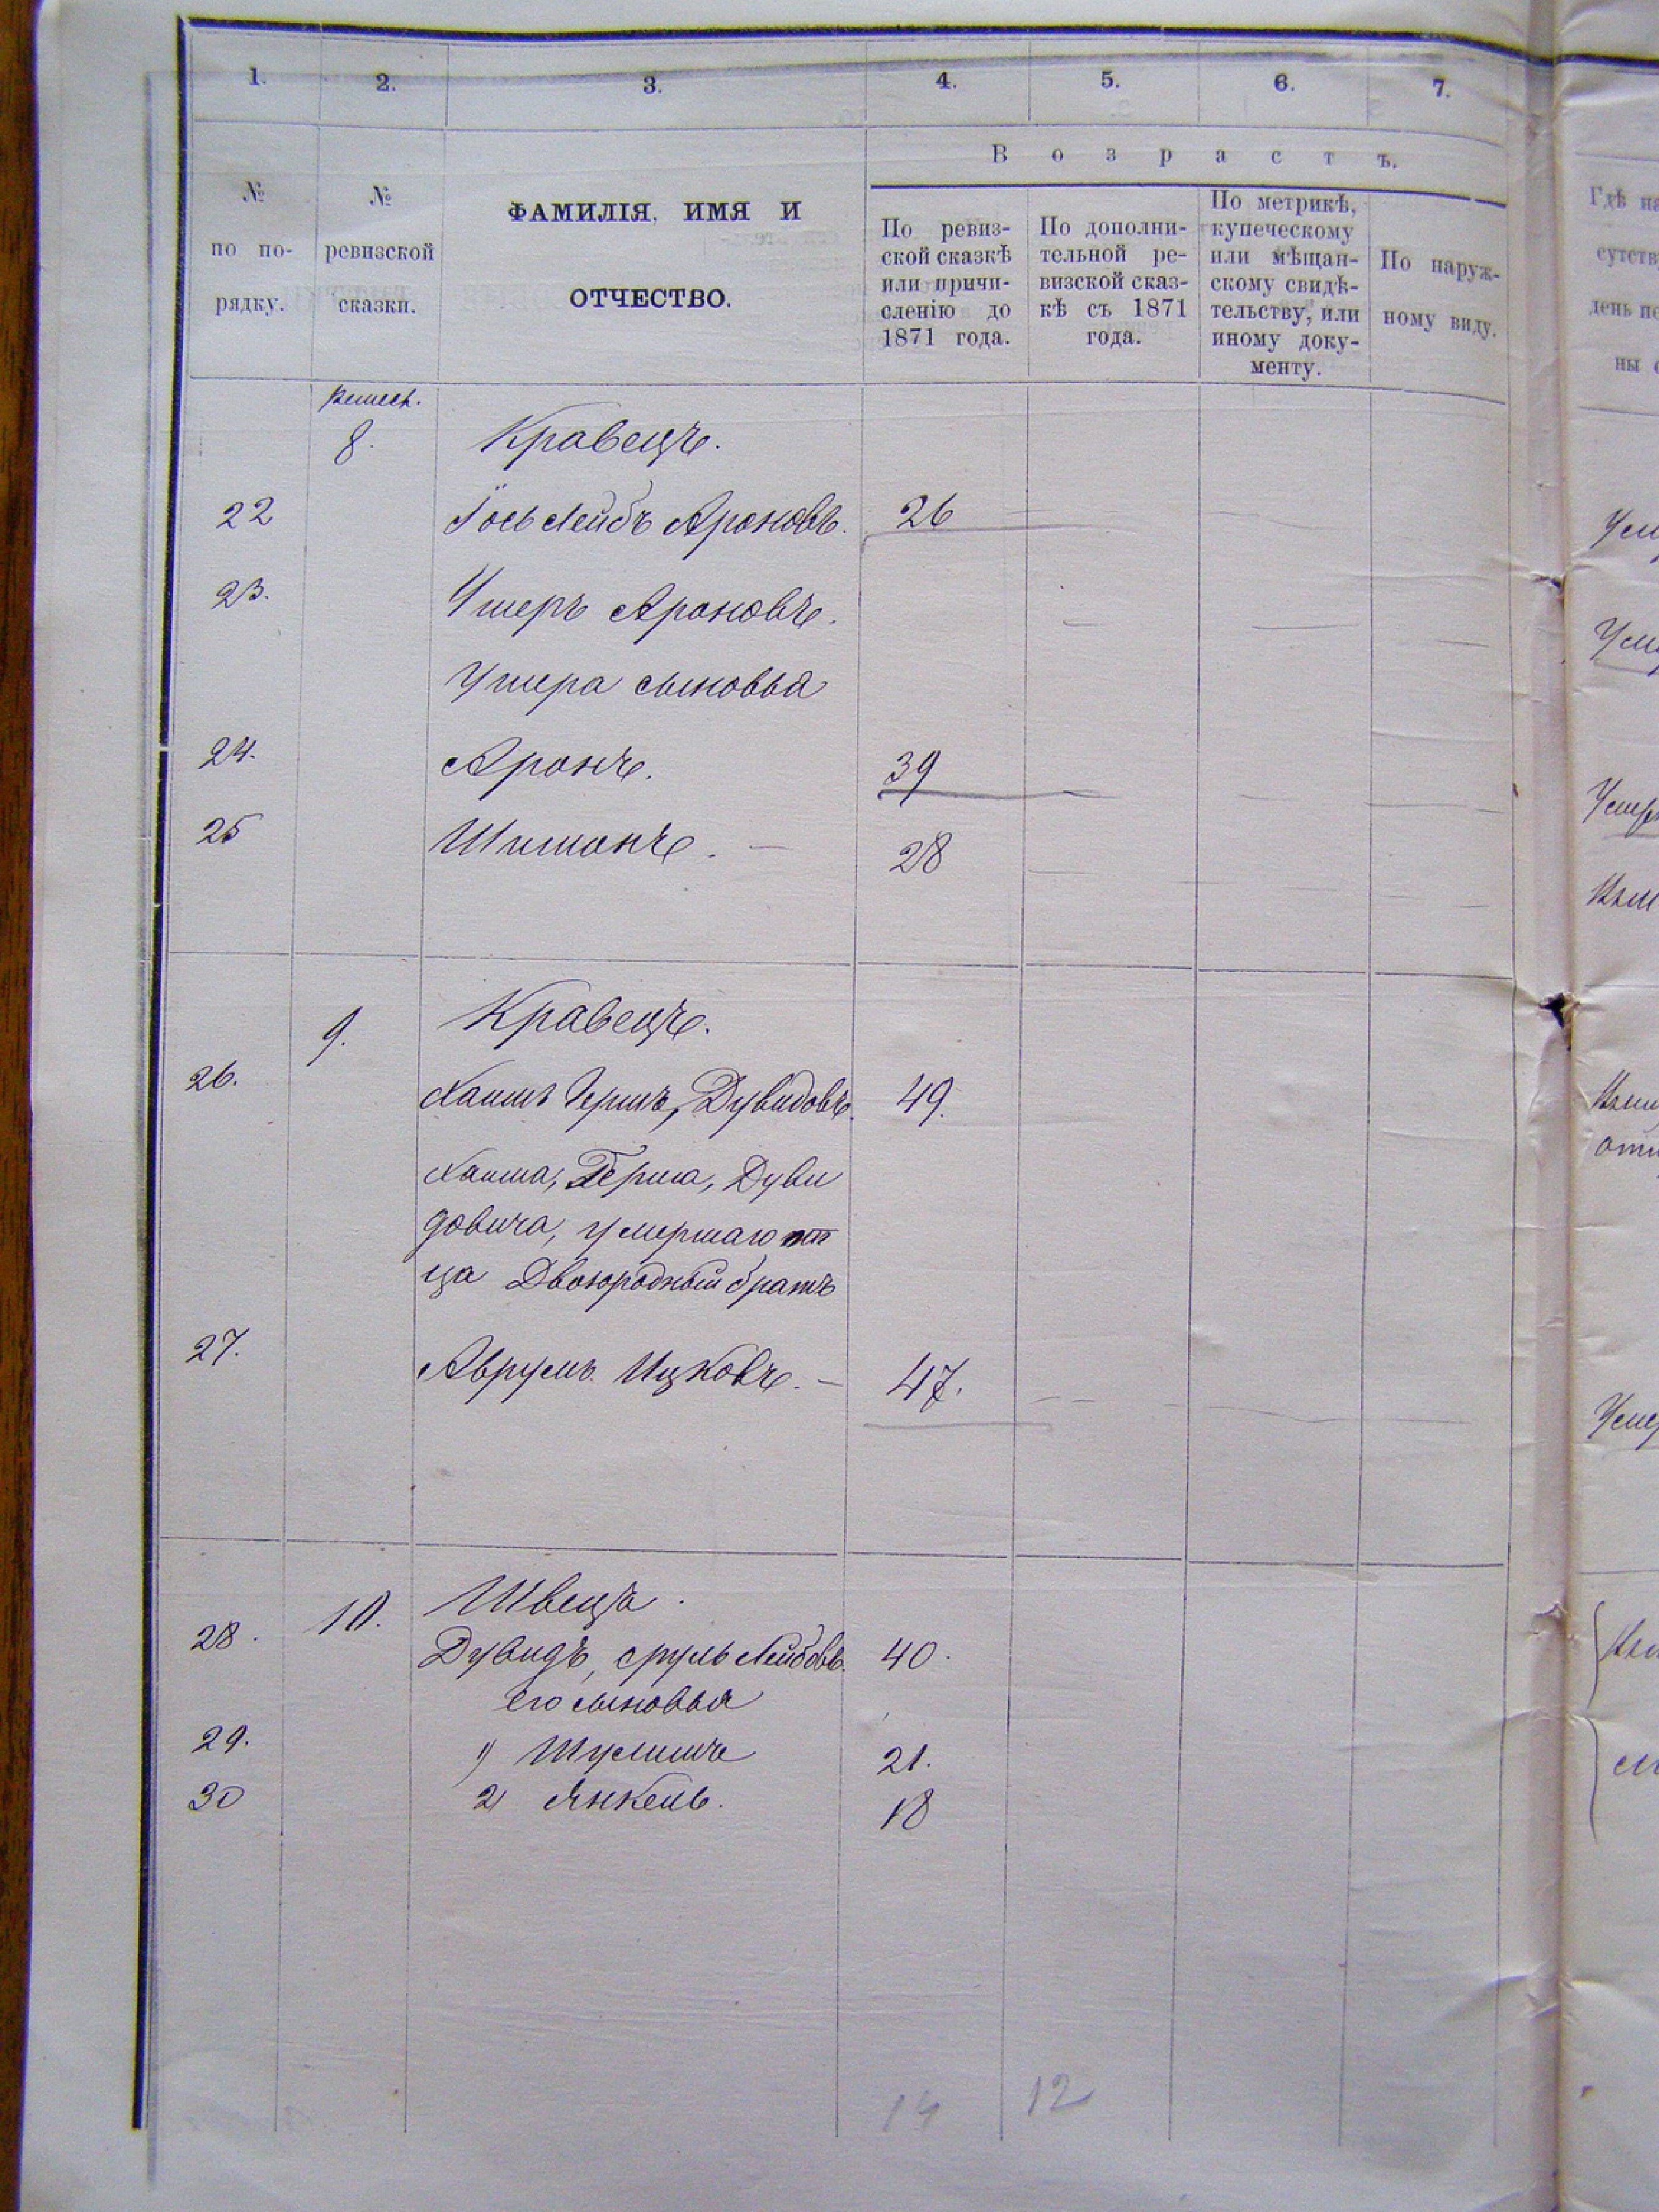 1. 2. 3. 4. 5. 6. 7.
В о з р а с т ъ.
№ по по-рядку.
№ ревизской сказки.
ФАМИЛІЯ, ИМЯ И
ОТЧЕСТВО.
По ревиз-
ской сказкѣ
или причи-
сленію до
1871 года.
По дополни-
тельной ре-
визской сказ-
кѣ съ 1871
года.
По метрикѣ,
купеческому
или мѣщан-
скому свидѣ-
тельству, или
иному доку-
менту.
По наруж-
ному виду.
Гдѣ на
сутств
день по
ны
8. Кравецъ.
22 Іось Лейбъ Ароновъ. 26
23. Ушеръ Ароновъ.
Ушера сыновья
24. Аронъ. 39
25 Шимонъ. — 28
9. Кравецъ.
26. Хаимъ Гершъ, Дувидовъ. 49.
Хаима, Герша, Дуви
довича, умершаго от
ца Двоюродный братъ
27. Аврумъ Ицковъ. — 47.
10. Швецъ.
28. Дувидъ, Сруль Лейбовъ. 40.
его сыновья
29. 1) Шулимъ 21.
30 2) Янкель. 18
14 12